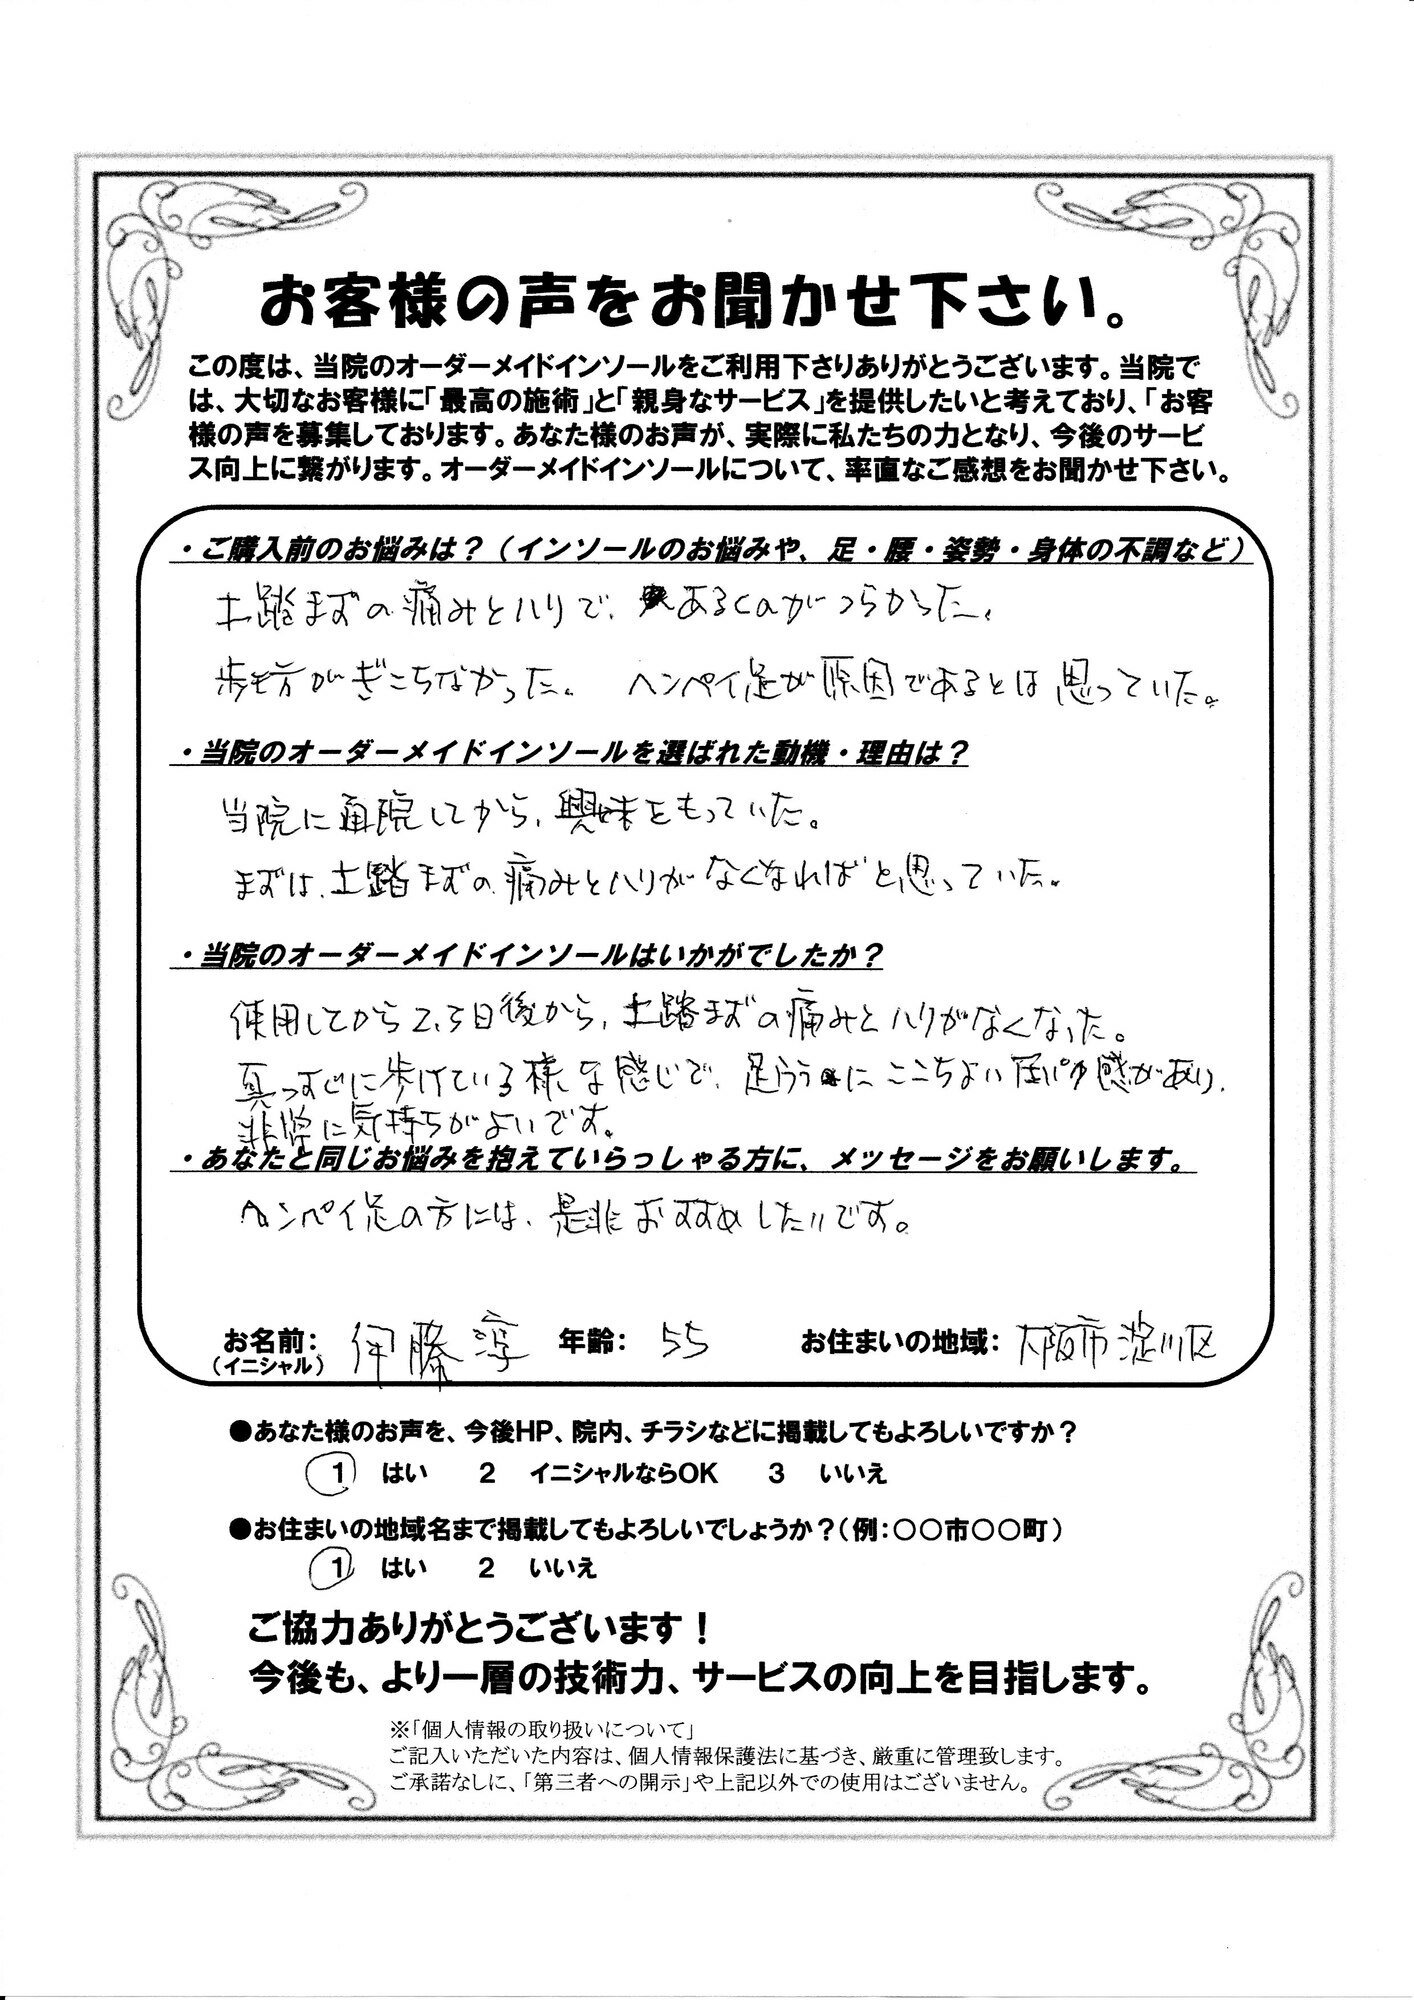 お客様の声をお聞かせ下さい。
この度は、当院のオーダーメイドインソールをご利用下さりありがとうございます。当院で
は、大切なお客様に「最高の施術」と「親身なサービス」を提供したいと考えており、「お客
様の声を募集しております。あなた様のお声が、実際に私たちの力となり、今後のサービ
ス向上に繋がります。オーダーメイドインソールについて、率直なご感想をお聞かせ下さい。
・ご購入前のお悩みは？（インソールのお悩みや、足・腰・姿勢・身体の不調など）
土踏まずの痛みとハリで、あるくのがつらかった、
歩き方がぎこちなかった。 ヘンペイ足が原因であるとは思っていた。
・当院のオーダーメイドインソールを選ばれた動機・理由は？
当院に通院してから、興味をもっていた。
まずは、土踏まずの痛みとハリがなくなればと思っていた。
・当院のオーダーメイドインソールはいかがでしたか？
使用してから2,3日後から、土踏まずの痛みとハリがなくなった。
真っすぐに歩けている様な感じで、足うらにここちよい圧パク感があり、
非常に気持ちがよいです。
・あなたと同じお悩みを抱えていらっしゃる方に、メッセージをお願いします。
ヘンペイ足の方には、是非おすすめしたいです。
お名前： 伊藤 淳 年齢： 55 お住まいの地域： 大阪市淀川区
（イニシャル）
●あなた様のお声を、今後HP、院内、チラシなどに掲載してもよろしいですか？
1 はい 2 イニシャルならOK 3 いいえ
●お住まいの地域名まで掲載してもよろしいでしょうか？（例：〇〇市〇〇町）
1 はい 2 いいえ
ご協力ありがとうございます！
今後も、より一層の技術力、サービスの向上を目指します。
※「個人情報の取り扱いについて」
ご記入いただいた内容は、個人情報保護法に基づき、厳重に管理致します。
ご承諾なしに、「第三者への開示」や上記以外での使用はございません。